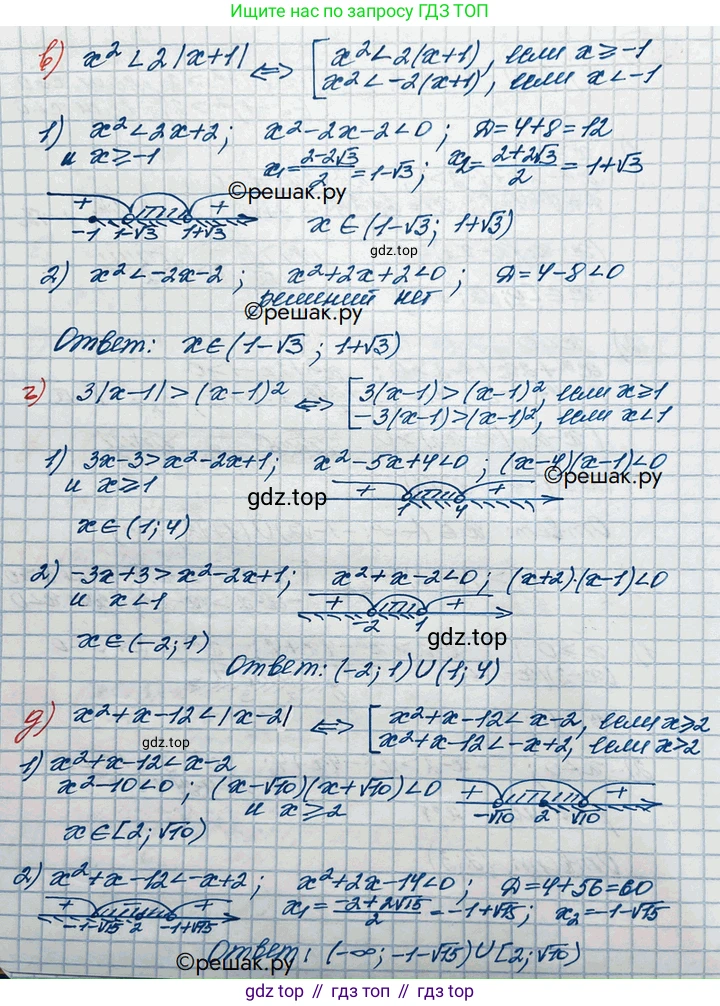 Ищите ответы по запросу ГДЗ ТОП
в) x² < 2|x+1| <=> [ x² < 2(x+1), если x ≥ -1
x² < -2(x+1), если x < -1
1) x² < 2x+2; x²-2x-2<0; Д=4+8=12
и x ≥ -1 x₁ = (2-2√3)/2 = 1-√3; x₂ = (2+2√3)/2 = 1+√3
+ + ©решак.ру
-1 1-√3 1+√3 x ∈ (1-√3; 1+√3)
gdz.top
2) x² < -2x-2; x²+2x+2<0; Д=4-8<0
решений нет
©решак.ру
Ответ: x∈(1-√3; 1+√3)
г) 3|x-1| > (x-1)² <=> [ 3(x-1) > (x-1)², если x ≥ 1
-3(x-1) > (x-1)², если x < 1
1) 3x-3 > x²-2x+1; x²-5x+4<0; (x-4)(x-1)<0
и x ≥ 1 + + ©решак.ру
gdz.top 1 4
x ∈ (1; 4)
2) -3x+3 > x²-2x+1; x²+x-2<0; (x+2)·(x-1)<0
и x < 1 + +
-2 1
x ∈ (-2; 1) gdz.top
Ответ: (-2; 1)∪(1; 4)
д) x²+x-12 < |x-2| <=> [ x²+x-12 < x-2, если x ≥ 2
x²+x-12 < -x+2, если x > 2
gdz.top
1) x²+x-12 < x-2
x²-10<0; (x-√10)(x+√10)<0 + +
и x ≥ 2 -√10 2 √10
x ∈ [2; √10)
2) x²+x-12 < -x+2; x²+2x-14<0; Д=4+56=60
+ + x₁ = (-2+2√15)/2 = -1+√15; x₂ = -1-√15
-1-√15 2 -1+√15
Ответ: (-∞; -1-√15)∪[2; √10)
©решак.ру
gdz top // гдз топ // gdz top